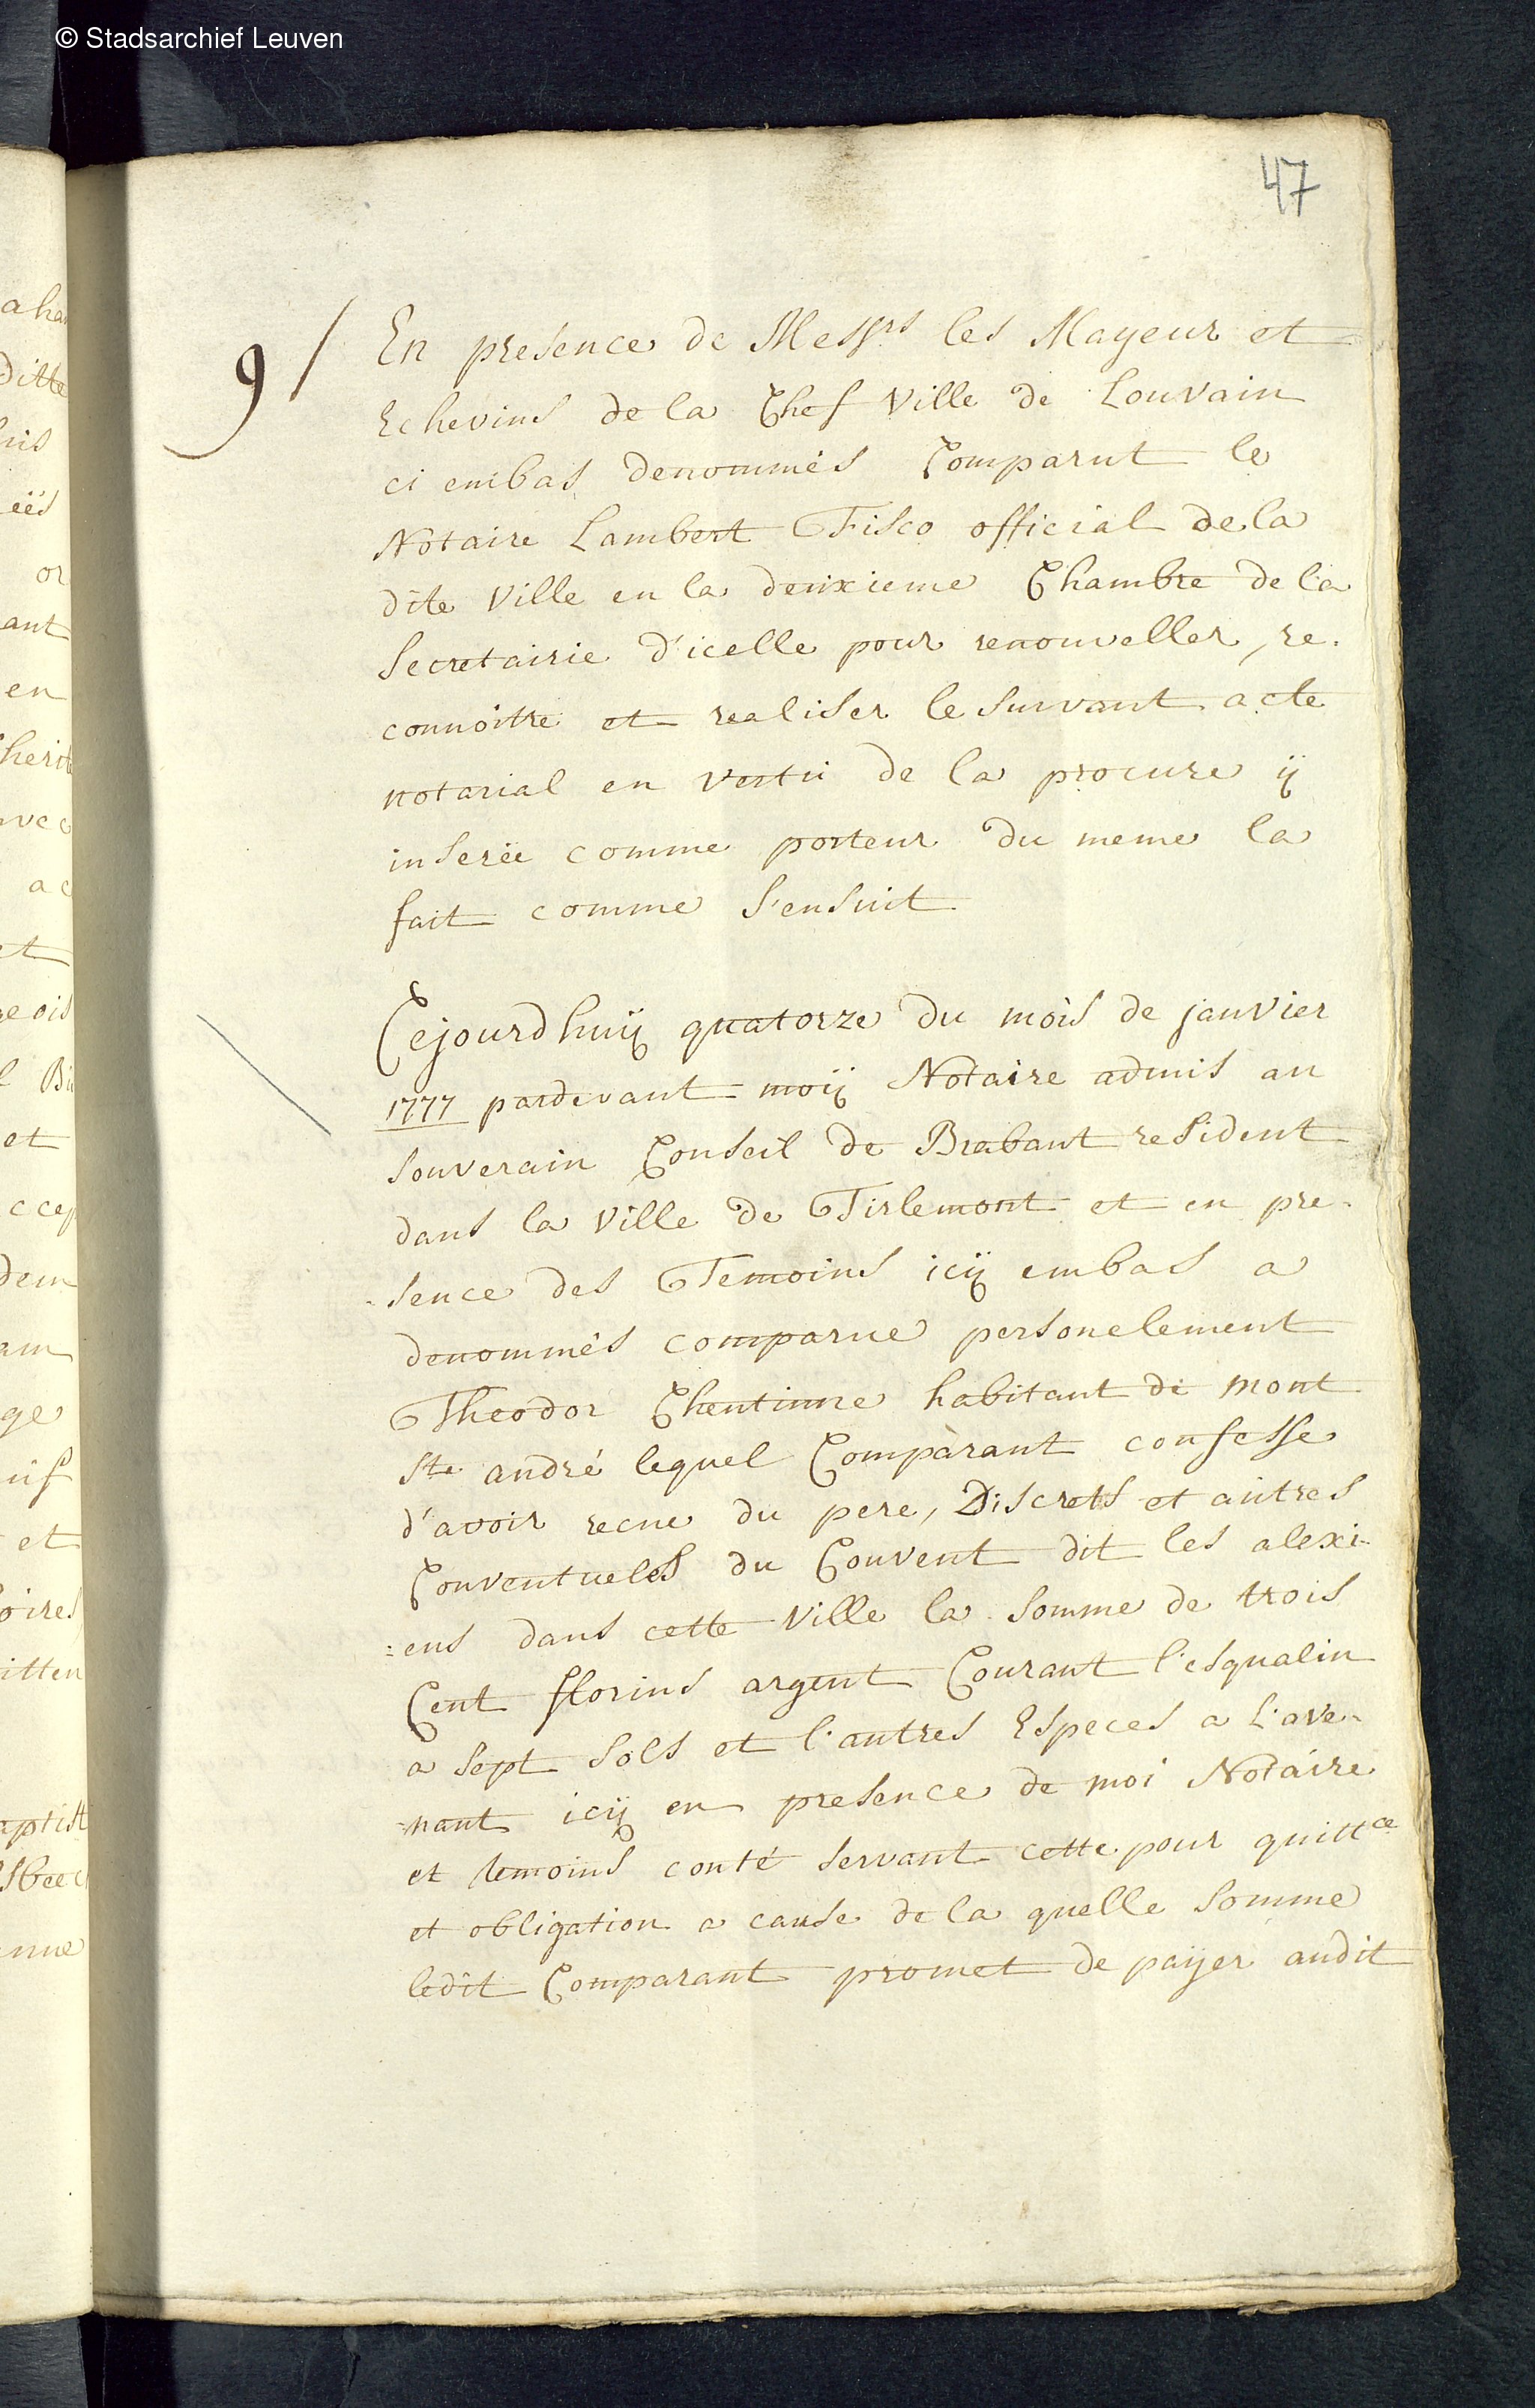 © Stadsarchief Leuven
47
9/
En presence de Messrs les Mayeur et
Echevins de la Chef Ville de Louvain
ci embas denommés Comparut le
Notaire Lambert Fisco official de la
dite Ville en la deuxieme Chambre de la
Secretairie d'icelle pour renouveller, re-
connoitre et realiser le survant acte
notarial en vertu de la procure ÿ
inserée comme porteur du meme la
fait comme s'ensuit
Cejourdhuÿ quatorze du mois de janvier
1777 pardevant moÿ Notaire admis au
souverain Conseil de Brabant resident
dans la Ville de Tirlemont et en pre-
sence des Temoins icÿ embas a
denommés comparue personelement
Theodor Chentinne habitant de mont
Ste andré lequel Comparant confesse
d'avoir recue du pere, Discrets et autres
Conventueles du Couvent dit les alexi-
:ens dans cette Ville la somme de trois
Cent florins argent Courant l'esqualin
a sept sols et l'autres Especes a l'ave-
-nant icÿ en presence de moi Notaire
et temoins conté servant cette pour quittce
et obligation a cause de la quelle somme
ledit Comparant promet de paÿer audit